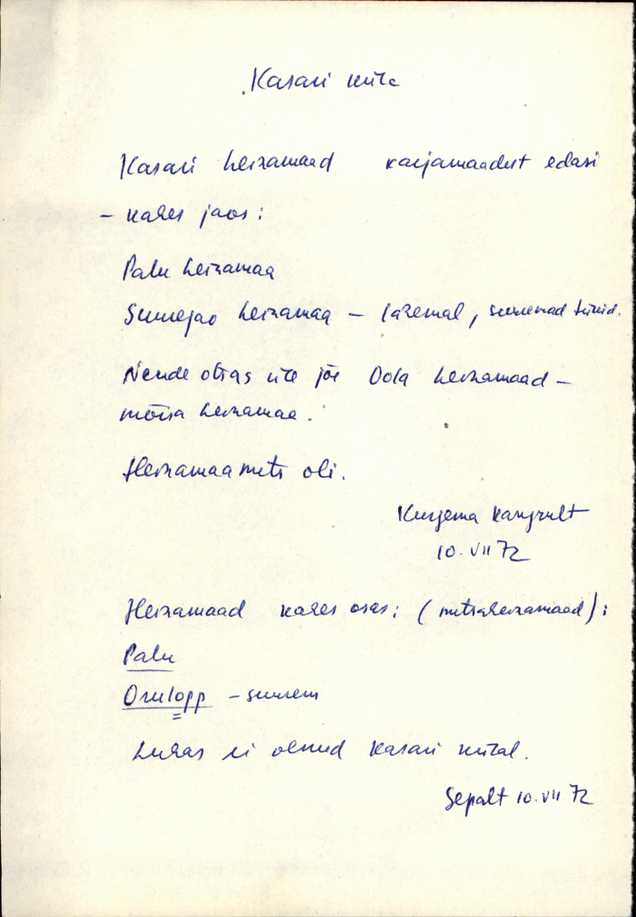 Kasari küla
Kasari heinamaad karjamaadest edasi
– kahes jaos:
Palu heinamaa
Suurejao heinamaa – lähemal, suuremad tükid.
Nende otsas üle jõe Oola heinamaad –
mõisa heinamaa.
Heinamaamets oli.
10. VII 72
Heinamaad kahes osas: (metsaheinamaad):
Palu
Orulopp – suurem
Luhas ei olnud Kasari külal.
Sepalt 10. VII 72